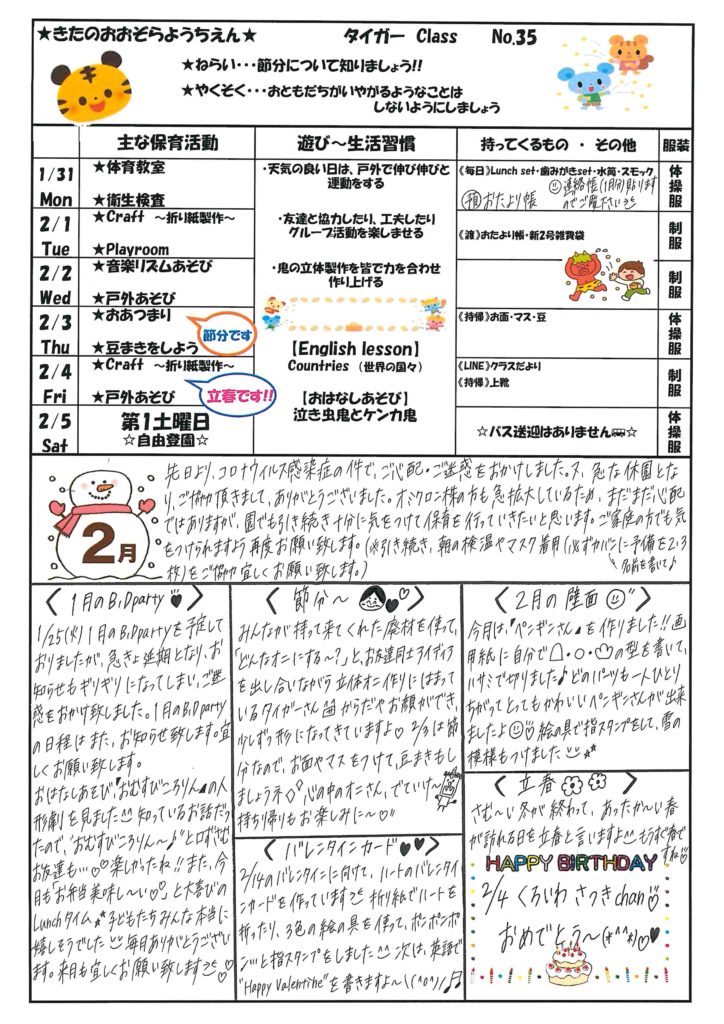 ★きたのおおぞらようちえん★ タイガー Class No.35
★ねらい・・・節分について知りましょう!!
★やくそく・・・おともだちがいやがるようなことは
しないようにしましょう
主な保育活動 遊び～生活習慣 持ってくるもの ・ その他 服装
1/31 Mon
★体育教室
★衛生検査
2/1 Tue
★Craft ～折り紙製作～
★Playroom
2/2 Wed
★音楽リズムあそび
★戸外あそび
2/3 Thu
★おあつまり
★豆まきをしよう
節分です
2/4 Fri
★Craft ～折り紙製作～
★戸外あそび
立春です!!
2/5 Sat
第1土曜日
☆自由登園☆
・天気の良い日は、戸外で伸び伸びと
運動をする
・友達と協力したり、工夫したり
グループ活動を楽しませる
・鬼の立体製作を皆で力を合わせ
作り上げる
【English lesson】
Countries (世界の国々)
【おはなしあそび】
泣き虫鬼とケンカ鬼
《毎日》Lunch set・歯みがきset・水筒・スモック
連絡帳(1月分)貼ります
のでご覧下さい
預 おたより帳
《渡》おたより帳・新2号雑貨袋
《持帰》お面・マス・豆
《LINE》クラスだより
《持帰》上靴
☆バス送迎はありません☆
体操服
制服
制服
体操服
制服
体操服
2月
先日より、コロナウイルス感染症の件で、ご心配・ご迷惑をおかけしました。又、急な休園とな
り、ご協力頂きまして、ありがとうございました。オミクロン株の方も急拡大しているため、まだまだ心配
ではありますが、園でも引き続き十分に気をつけて保育を行っていきたいと思います。ご家庭の方でも気
をつけられますよう再度お願い致します。(※引き続き、朝の検温やマスク着用(必ずカバンに予備を2・3
枚)をご協力宜しくお願い致します。)
名前を書いて♪
〈1月のB.D party♥〉
1/25(火)1月のB.D partyを予定して
おりましたが、急きょ延期となり、お
知らせもギリギリになってしまい、ご迷
惑をおかけ致しました。1月のB.D party
の日程はまた、お知らせ致します。宜
しくお願い致します。
おはなしあそび『おむすびころりん』の人
形劇を見ました^^知っているお話だっ
たので、"おむすびころりん～♪"と口ずさむ
お友達も…♡楽しかったね!!また、今
日も「お弁当美味し～い♡」と大喜びの
Lunchタイム 子どもたちみんな本当に
嬉しそうでした 毎日ありがとうございま
す。来月も宜しくお願い致します♡
〈節分～〉
みんなが持って来てくれた廃材を使って、
「どんなオニにする～?」と、お友達同士アイディア
を出し合いながら立体オニ作りにはまって
いるタイガーさん からだやお顔ができ、
少しずつ形になってきていますよ♡ 2/3は節
分なので、お面やマスをつけて、豆まきもし
ましょうネ 心の中のオニさん、でていけ～
持ち帰りもお楽しみに～♡
〈バレンタインカード♥♥〉
2/14のバレンタインに向けて、ハートのバレンタイ
ンカードを作っています 折り紙でハートを
折ったり、3色の絵の具を使って、ポンポンポ
ン…と指スタンプをしました^^ 次は、英語で
"Happy Valentine"を書きますよ～\(^o^)/♫
〈2月の壁面〉
今月は、「ペンギンさん」を作りました!!画
用紙に自分で△・○・♡の型を書いて、
ハサミで切りました♪どのパーツも一人ひとり
ちがってとてもかわいいペンギンさんが出来
ましたよ♡絵の具で指スタンプをして、雪の
模様もつけました
〈立春〉
さむ～い冬が終わって、あったか～い春
が訪れる日を立春と言いますよ^^もうすぐ春で
すね♡
HAPPY BIRTHDAY
2/4 くろいわ さつきchan♡
おめでとう～(*^^*)♡♥